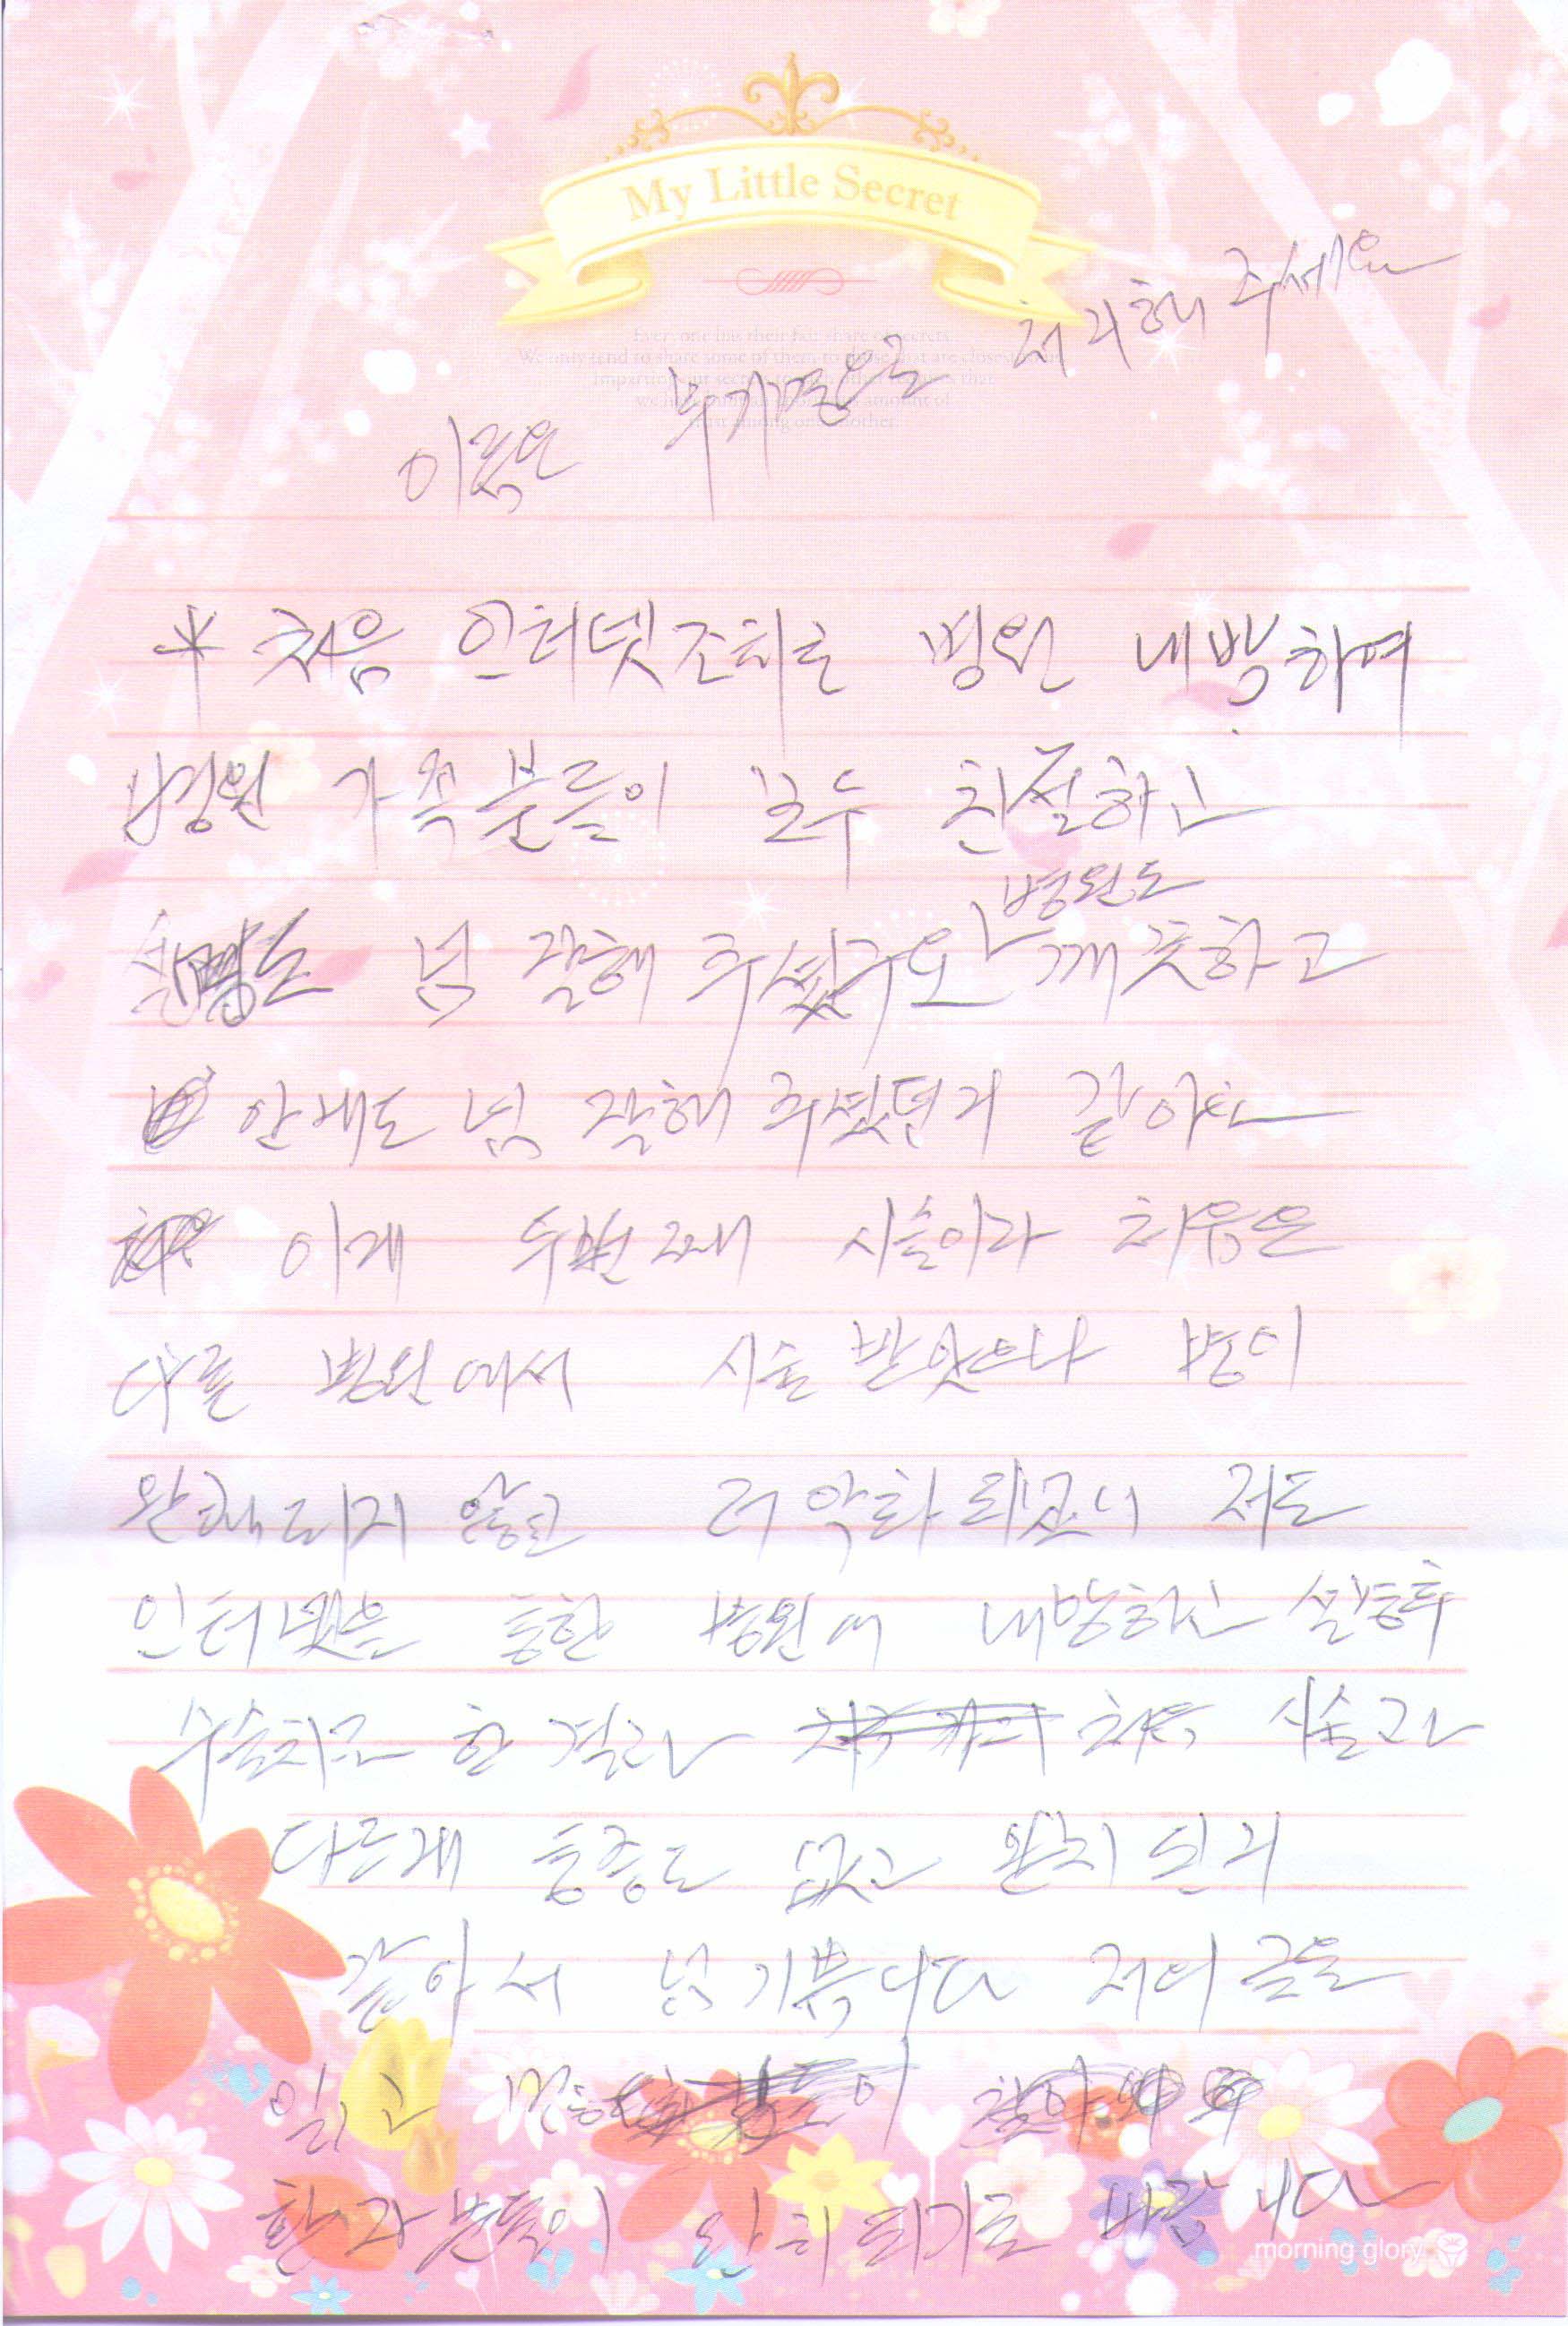 My Little Secret
Everyone has their fair share of secrets.
We only tend to share some of them to those that are closest
이름은 무기명으로 처리해 주세요
* 처음 인터넷조회로 병원 내방하여
병원 가족분들이 모두 친절하고
설명도 넘 잘해 주셨구요 병원도 깨끗하고
안내도 넘 잘해 주셨던거 같아요
이게 두번째 시술이라 처음은
다른 병원에서 시술 받았으나 병이
완쾌되지 않고 더 악화되었으니 저도
인터넷을 통한 병원에 내방하신 설명후
수술치료 한 결과 처음 시술과
다르게 통증도 없고 완치된거
같아서 넘 기쁩니다 저의 글을
읽고 많은 이
환자분들이 완치되기를 바랍니다
morning glory